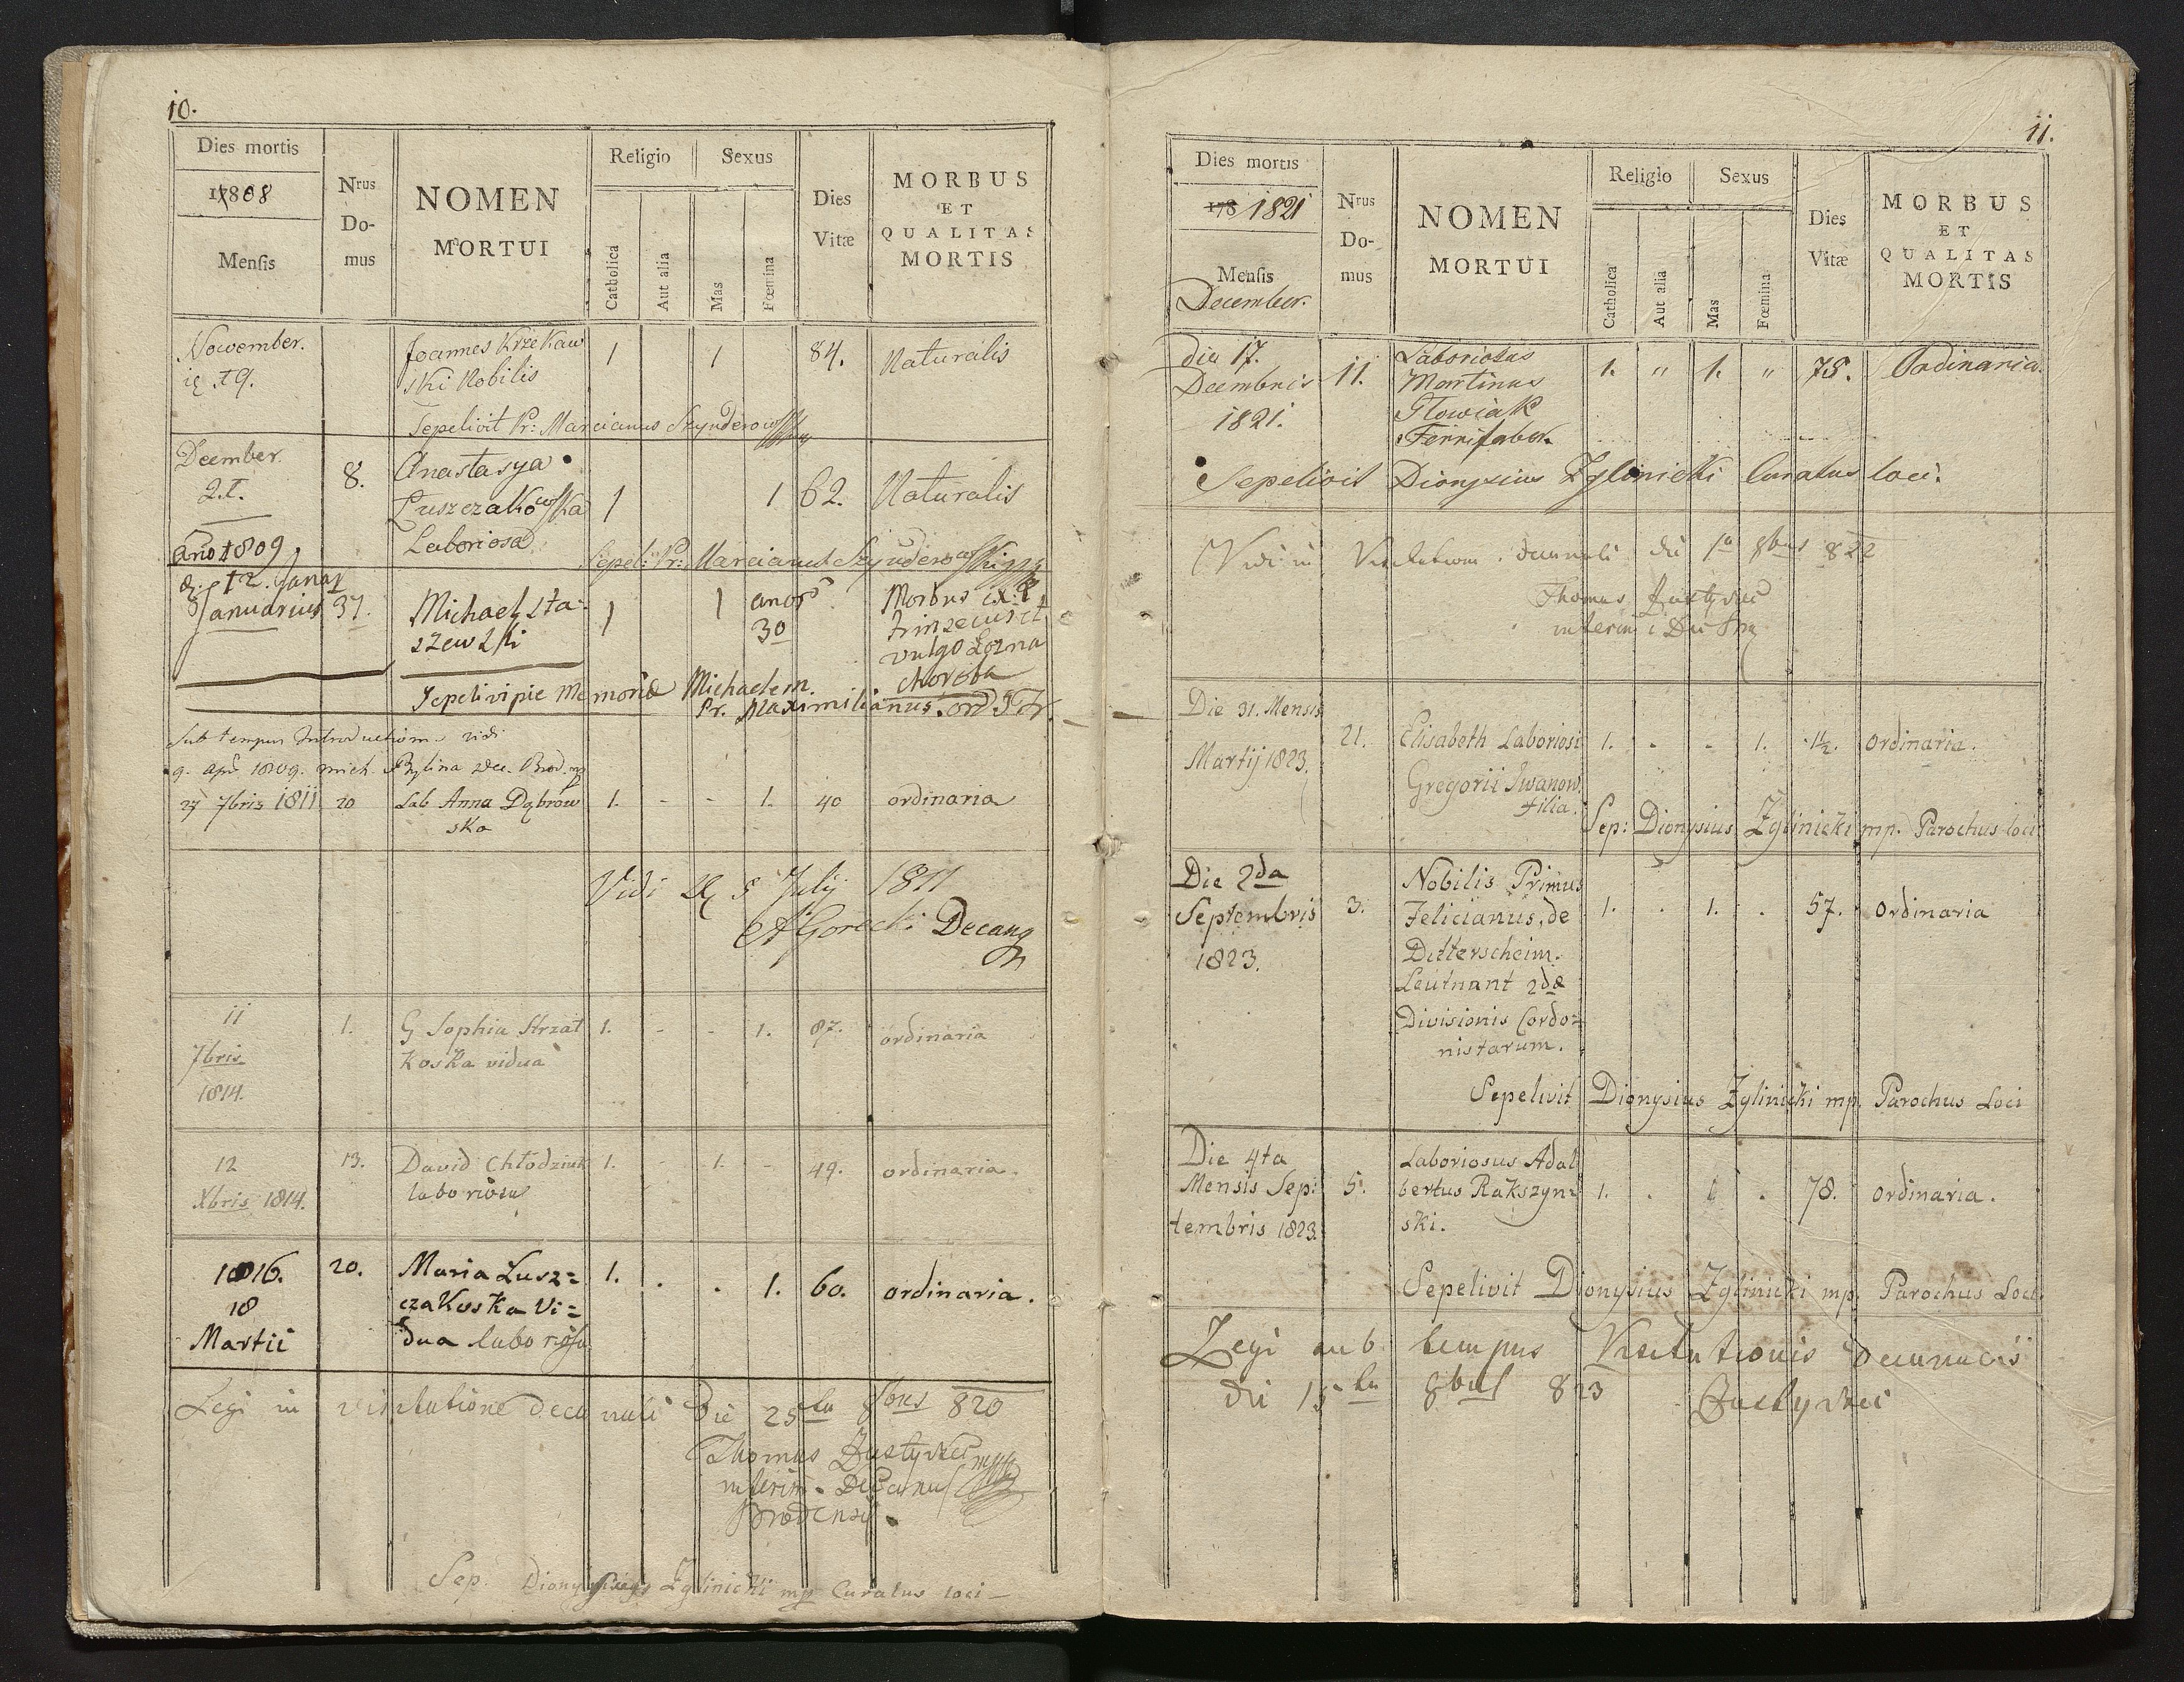 10.
Dies mortis
1808
Mensis
Nrus
Do-
mus
NOMEN
MORTUI
Religio
Catholica
Aut alia
Sexus
Mas
Fœmina
Dies
Vitæ
MORBUS
ET
QUALITAS
MORTIS
Nowember.
Joannes Krzekaw
ski Nobilis
1 1 84. Naturalis
Sepelivit Pr: Marcianus
December
8. Anastasya
62. Naturalis
Laboriosa
Sepel: Pr: Marcianus
Ano 1809
d. 12. Januar
Januarius 37. Michael Sta-
szewski
1 1
30
Morbus
vulgo
choroba
Sepelivi pie Memoriæ Michaelem.
Pr. Maximilianus. Ord
Sub tempus Introductionis vidi
9. Apr. 1809. Mich.
27 7bris 1811 20 Lab Anna Dąbrow
ska
1. - - 1. 40 ordinaria
Vidi 5 July 1811
Gorecki Decanq
11
7bris
1814.
1. G Sophia Strzał
koska vidua
1. - - 1. 87. ordinaria
12
Xbris 1814.
13. David Chłodziuk
laboriosus
1. - 1. - 49. ordinaria.
1816.
18
Martii
20. Maria Lusz=
czakoska Vi=
dua laboriosa
1. . . 1. 60. ordinaria.
Legi in visitatione decanali Die 25ta 8bris 820
Thomas
interim. Decanus
Brodensis.
Sep. Dionysius Zglinicki mp Curatus loci
11.
Dies mortis
178 1821
Mensis
December.
Nrus
Do-
mus
NOMEN
MORTUI
Religio
Catholica
Aut alia
Sexus
Mas
Fœmina
Dies
Vitæ
MORBUS
ET
QUALITAS
MORTIS
die 17.
Decembris
1821.
11. Laboriosus
Martinus
Ferrifaber.
1. " 1. " 78. Ordinaria.
Sepelivit Dionysius Zglinicki Curatus loci.
Vidi in Visitatione decanali die 1a 8bris 822
Thomas
Die 31. Mensis
Martij 1823.
21. Elisabeth Laboriosi
Gregorii Iwanow
filia.
1. . - 1. 1½. ordinaria.
Sep: Dionysius Zglinicki mp. Parochus loci
Die 2da
Septembris
1823.
3. Nobilis Primus
Felicianus, de
Ditterscheim.
Leutnant 2dæ
Divisionis Cordo=
nistarum.
1. . 1. . 57. Ordinaria
Sepelivit Dionysius Zglinicki mp. Parochus Loci
Die 4ta
Mensis Sep:
tembris 1823.
5. Laboriosus Adal
bertus Rakszyn=
ski.
1. . 1 . 78. ordinaria.
Sepelivit Dionysius Zglinicki mp. Parochus Loci.
Legi sub tempus Visitationis decanalis
die 15ta 8bris 823